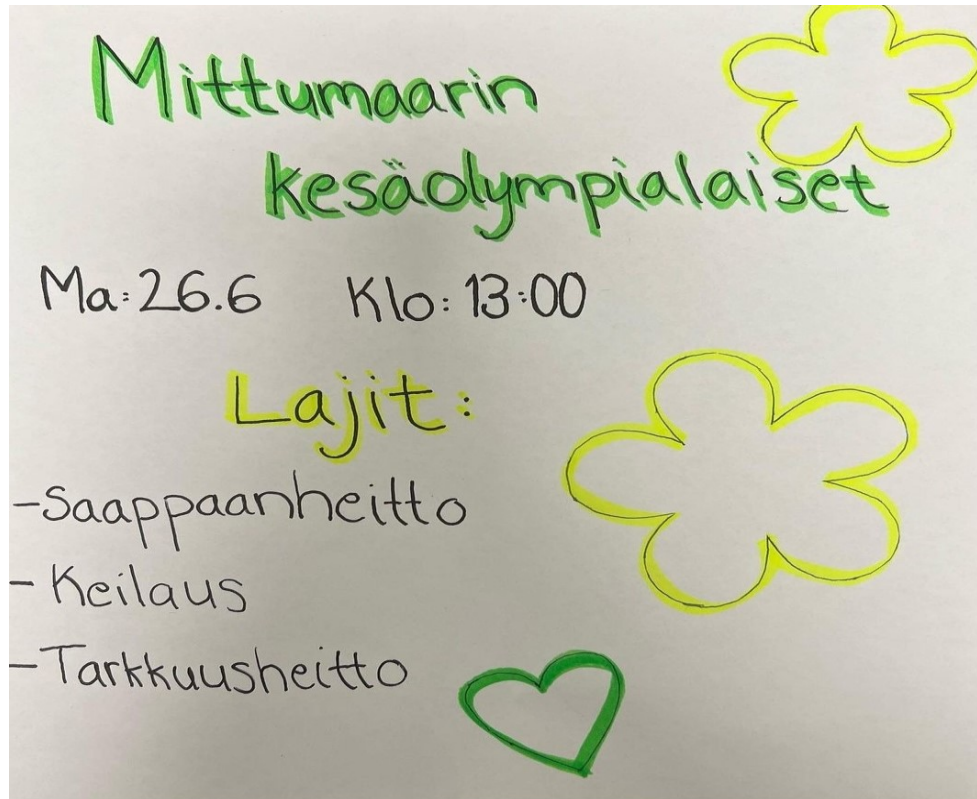 Mittumaarin
kesäolympialaiset
Ma: 26.6 Klo: 13:00
Lajit:
-Saappaanheitto
- Keilaus
-Tarkkuusheitto